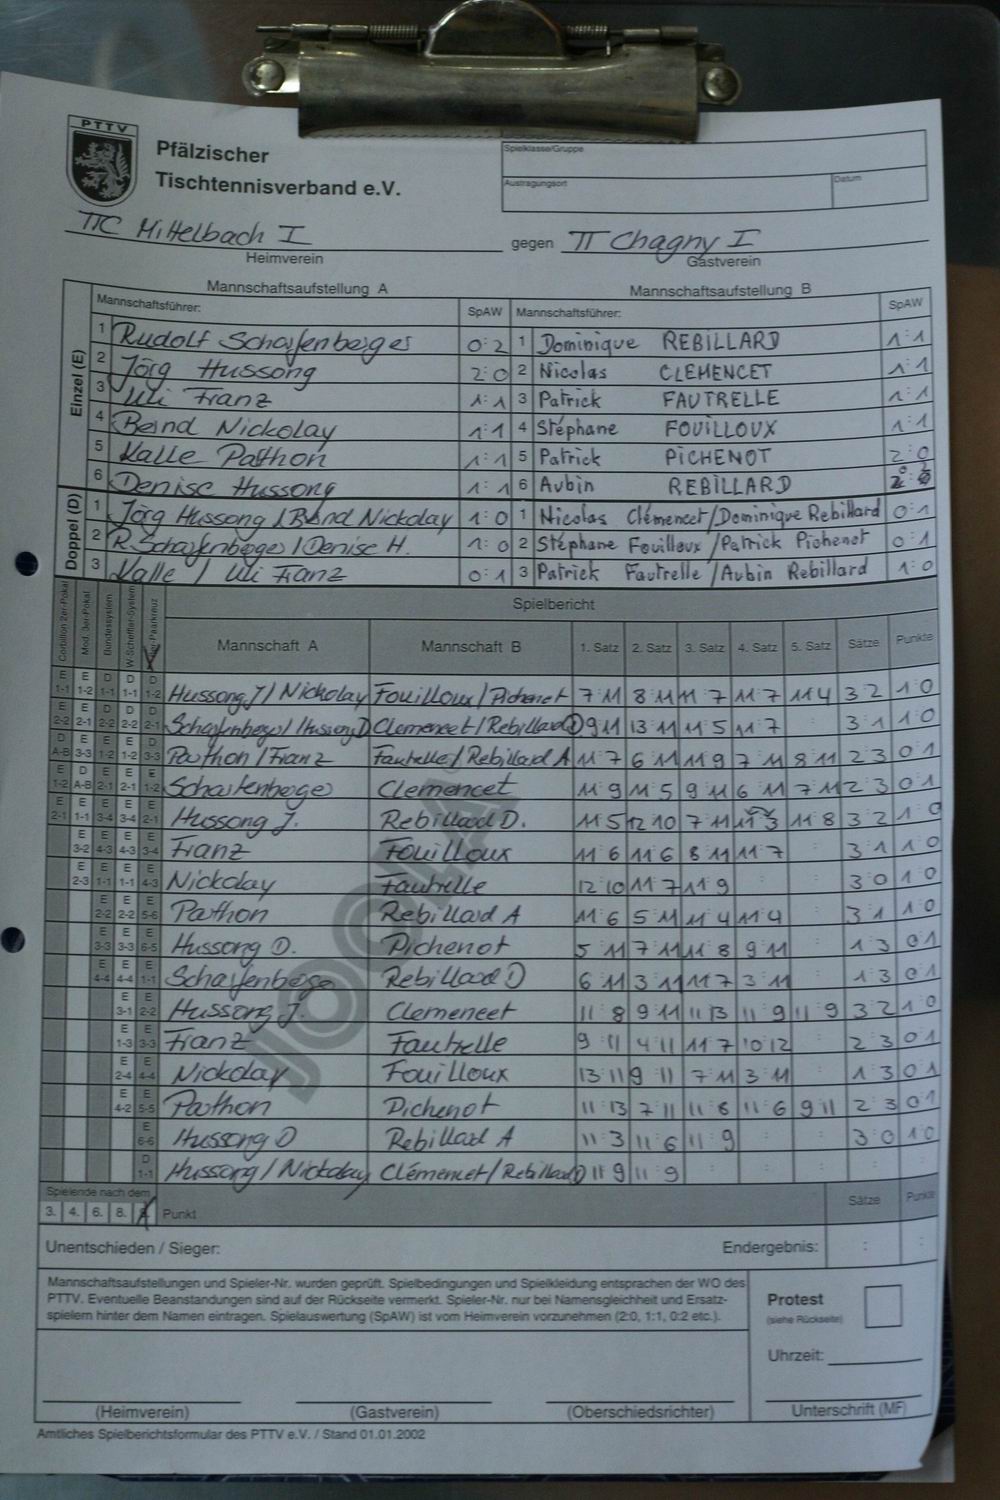 PTTV
Pfälzischer
Tischtennisverband e.V.
Spielklasse/Gruppe
Austragungsort
Datum
TTC Mittelbach I gegen TT Chagny I
Heimverein Gastverein
Mannschaftsaufstellung A Mannschaftsaufstellung B
Mannschaftsführer: SpAW Mannschaftsführer: SpAW
Einzel (E)
1 Rudolf Scharfenberger 0:2 1 Dominique REBILLARD 1:1
2 Jörg Hussong 2:0 2 Nicolas CLEMENCET 1:1
3 Uli Franz 1:1 3 Patrick FAUTRELLE 1:1
4 Bernd Nickolay 1:1 4 Stéphane FOUILLOUX 1:1
5 Kalle Pathon 1:1 5 Patrick PICHENOT 2:0
6 Denise Hussong 1:1 6 Aubin REBILLARD
Doppel (D)
1 Jörg Hussong / Bernd Nickolay 1:0 1 Nicolas Clémencet/Dominique Rebillard 0:1
2 R.Scharfenberger / Denise H. 1:0 2 Stéphane Fouilloux /Patrick Pichenot 0:1
3 Kalle / Uli Franz 0:1 3 Patrick Fautrelle /Aubin Rebillard 1:0
Corbillon 2er-Pokal Mod. 3er-Pokal Bundessystem W.Scheffler-System
Spielbericht
Mannschaft A Mannschaft B 1. Satz 2. Satz 3. Satz 4. Satz 5. Satz Sätze Punkte
E 1-1 E 1-2 D 1-1 D 1-1 D 1-2 Hussong J/Nickolay Fouilloux/Pichenot 7:11 8:11 11:7 11:7 11:4 3:2 1:0
E 2-2 E 2-1 D 2-2 D 2-2 D 2-1 Scharfenberger/Hussong D Clemencet/Rebillard D 9:11 13:11 11:5 11:7 3:1 1:0
D A-B E 3-3 E 1-2 E 1-2 D 3-3 Pathon/Franz Fautrelle/Rebillard A 11:7 6:11 11:9 7:11 8:11 2:3 0:1
E 1-2 D A-B E 2-1 E 2-1 E 1-2 Scharfenberger Clemencet 11:9 11:5 9:11 6:11 7:11 2:3 0:1
E 2-1 E 1-1 E 3-4 E 3-4 E 2-1 Hussong J. Rebillard D. 11:5 12:10 7:11 11:8 3:2 1:0
E 3-2 E 4-3 E 4-3 E 3-4 Franz Fouilloux 11:6 11:6 8:11 11:7 3:1 1:0
E 2-3 E 1-1 E 1-1 E 4-3 Nickolay Fautrelle 12:10 11:7 11:9 : : 3:0 1:0
E 2-2 E 2-2 E 5-6 Pathon Rebillard A 11:6 5:11 11:4 11:4 : 3:1 1:0
E 3-3 E 3-3 E 6-5 Hussong D. Pichenot 5:11 7:11 11:8 9:11 : 1:3 0:1
E 4-4 E 4-4 E 1-1 Scharfenberger Rebillard D 6:11 3:11 11:7 3:11 : 1:3 0:1
E 3-1 E 2-2 Hussong J. Clemencet 11:8 9:11 11:13 11:9 11:9 3:2 1:0
E 1-3 E 3-3 Franz Fautrelle 9:11 4:11 11:7 10:12 2:3 0:1
E 2-4 E 4-4 Nickolay Fouilloux 13:11 9:11 7:11 3:11 1:3 0:1
E 4-2 E 5-5 Pathon Pichenot 11:13 7:11 11:8 11:6 9:11 2:3 0:1
E 6-6 Hussong D Rebillard A 11:3 11:6 11:9 : : 3:0 1:0
D 1-1 Hussong/Nickolay Clémencet/Rebillard D 11:9 11:9 : : : : :
Spielende nach dem Sätze Punkte
3. 4. 6. 8. Punkt
Unentschieden / Sieger: Endergebnis: : :
Mannschaftsaufstellungen und Spieler-Nr. wurden geprüft. Spielbedingungen und Spielkleidung entsprachen der WO des
PTTV. Eventuelle Beanstandungen sind auf der Rückseite vermerkt. Spieler-Nr. nur bei Namensgleichheit und Ersatz-
spielern hinter dem Namen eintragen. Spielauswertung (SpAW) ist vom Heimverein vorzunehmen (2:0, 1:1, 0:2 etc.).
Protest
(siehe Rückseite)
Uhrzeit:
(Heimverein) (Gastverein) (Oberschiedsrichter) Unterschrift (MF)
Amtliches Spielberichtsformular des PTTV e.V. / Stand 01.01.2002
JOOLA